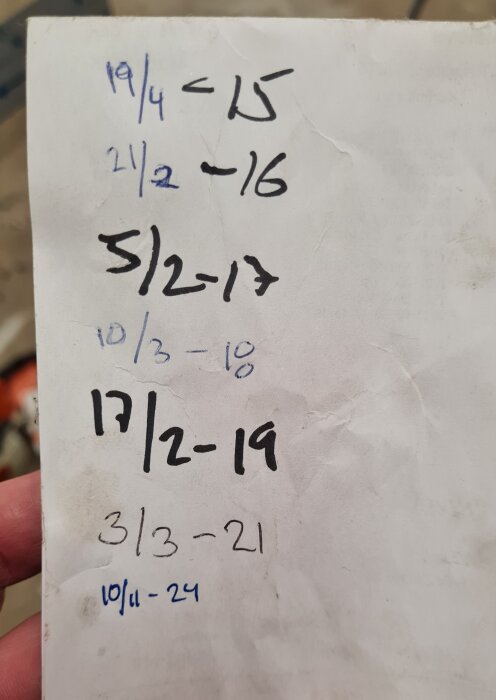 19/4 - 15
21/2 - 16
5/2 - 17
10/3 - 18
17/2 - 19
3/3 - 21
10/11 - 24